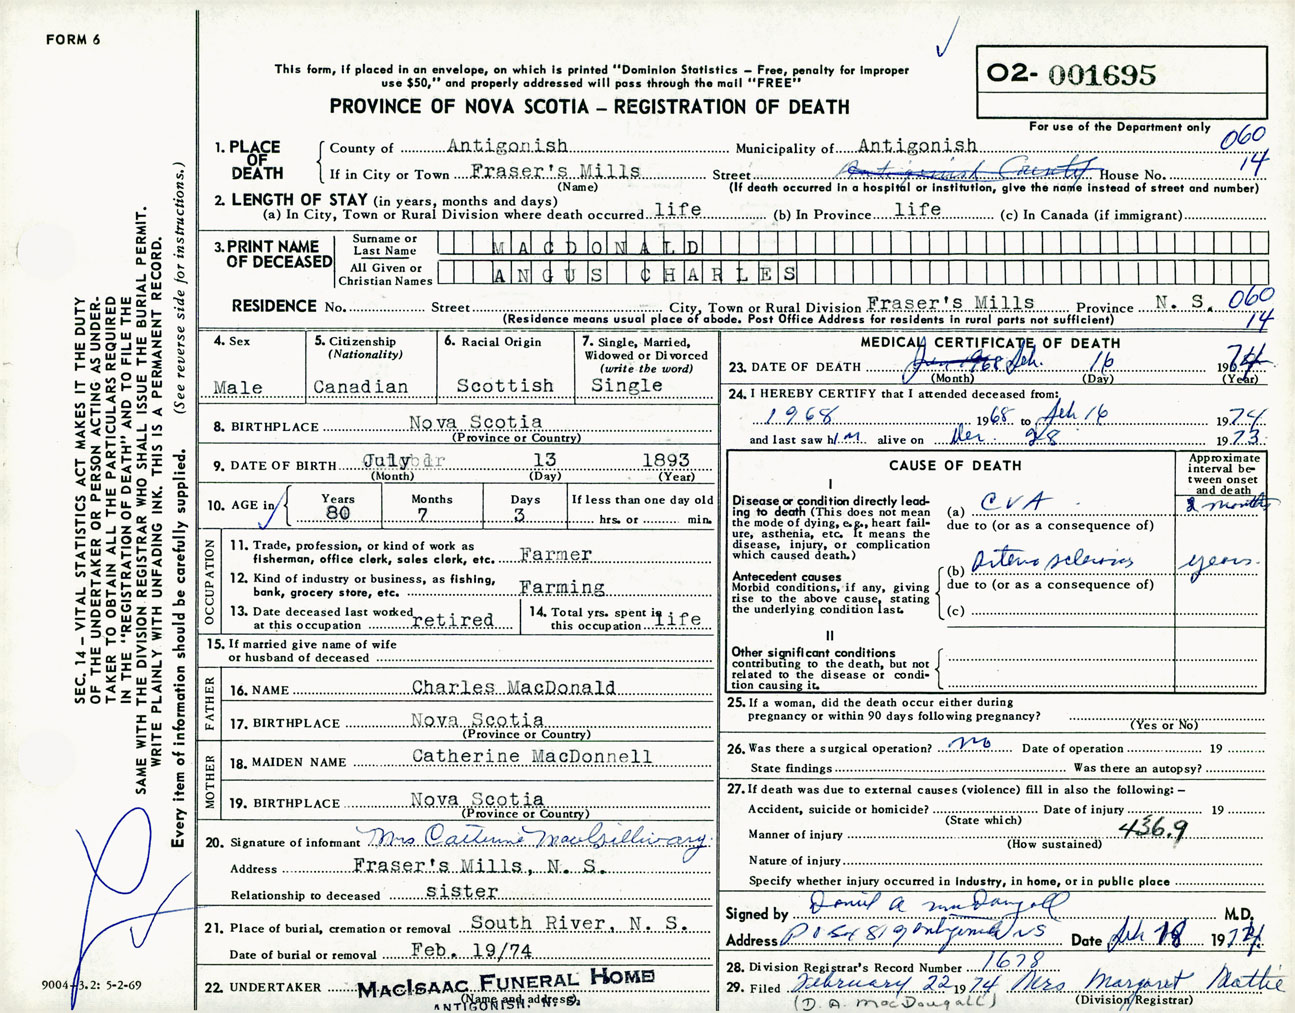 FORM 6
This form, if placed in an envelope, on which is printed "Dominion Statistics – Free, penalty for improper
use $50," and properly addressed will pass through the mail "FREE"
PROVINCE OF NOVA SCOTIA – REGISTRATION OF DEATH
02- 001695
For use of the Department only
060
14
1. PLACE OF DEATH
County of Antigonish Municipality of Antigonish
If in City or Town Fraser's Mills Street Antigonish County House No.
(Name) (If death occurred in a hospital or institution, give the name instead of street and number)
2. LENGTH OF STAY (in years, months and days)
(a) In City, Town or Rural Division where death occurred life (b) In Province life (c) In Canada (if immigrant)
3. PRINT NAME OF DECEASED
Surname or Last Name MACDONALD
All Given or Christian Names ANGUS CHARLES
RESIDENCE No. Street City, Town or Rural Division Fraser's Mills Province N. S. 060
(Residence means usual place of abode. Post Office Address for residents in rural parts not sufficient) 14
4. Sex
Male
5. Citizenship
(Nationality)
Canadian
6. Racial Origin
Scottish
7. Single, Married,
Widowed or Divorced
(write the word)
Single
8. BIRTHPLACE Nova Scotia
(Province or Country)
9. DATE OF BIRTH July 13 1893
(Month) (Day) (Year)
10. AGE in
Years Months Days If less than one day old
80 7 3 hrs. or min.
OCCUPATION
11. Trade, profession, or kind of work as
fisherman, office clerk, sales clerk, etc. Farmer
12. Kind of industry or business, as fishing,
bank, grocery store, etc. Farming
13. Date deceased last worked
at this occupation retired
14. Total yrs. spent in
this occupation life
15. If married give name of wife
or husband of deceased
FATHER
16. NAME Charles MacDonald
17. BIRTHPLACE Nova Scotia
(Province or Country)
MOTHER
18. MAIDEN NAME Catherine MacDonnell
19. BIRTHPLACE Nova Scotia
(Province or Country)
20. Signature of informant Mrs Catherine MacGillivary
Address Fraser's Mills, N. S.
Relationship to deceased sister
21. Place of burial, cremation or removal South River, N. S.
Date of burial or removal Feb. 19/74
22. UNDERTAKER MACISAAC FUNERAL HOME
(Name and address)
ANTIGONISH, N. S.
MEDICAL CERTIFICATE OF DEATH
23. DATE OF DEATH Feb. 16 1974
(Month) (Day) (Year)
24. I HEREBY CERTIFY that I attended deceased from:
1968 1968 to Feb 16 1974
and last saw him alive on Dec 28 1973
CAUSE OF DEATH
Approximate
interval be-
tween onset
and death
I
Disease or condition directly lead-
ing to death (This does not mean
the mode of dying, e.g., heart fail-
ure, asthenia, etc. It means the
disease, injury, or complication
which caused death.)
(a) CVA 2 months
due to (or as a consequence of)
Antecedent causes
Morbid conditions, if any, giving
rise to the above cause, stating
the underlying condition last.
(b) Arteriosclerosis years
due to (or as a consequence of)
(c)
II
Other significant conditions
contributing to the death, but not
related to the disease or condi-
tion causing it.
25. If a woman, did the death occur either during
pregnancy or within 90 days following pregnancy?
(Yes or No)
26. Was there a surgical operation? no Date of operation 19
State findings Was there an autopsy?
27. If death was due to external causes (violence) fill in also the following: –
Accident, suicide or homicide? Date of injury 19
(State which)
Manner of injury 436.9
(How sustained)
Nature of injury
Specify whether injury occurred in industry, in home, or in public place
Signed by Daniel A MacDougall M.D.
Address PO Box 819 Antigonish NS Date Feb 18 1974
28. Division Registrar's Record Number 1678
29. Filed February 22 1974 Mrs Margaret Mattie
(D. A. MacDougall) (Division Registrar)
SEC. 14 – VITAL STATISTICS ACT MAKES IT THE DUTY
OF THE UNDERTAKER OR PERSON ACTING AS UNDER-
TAKER TO OBTAIN ALL THE PARTICULARS REQUIRED
IN THE "REGISTRATION OF DEATH" AND TO FILE THE
SAME WITH THE DIVISION REGISTRAR WHO SHALL ISSUE THE BURIAL PERMIT.
WRITE PLAINLY WITH UNFADING INK. THIS IS A PERMANENT RECORD.
Every item of information should be carefully supplied. (See reverse side for instructions.)
9004-3.2: 5-2-69